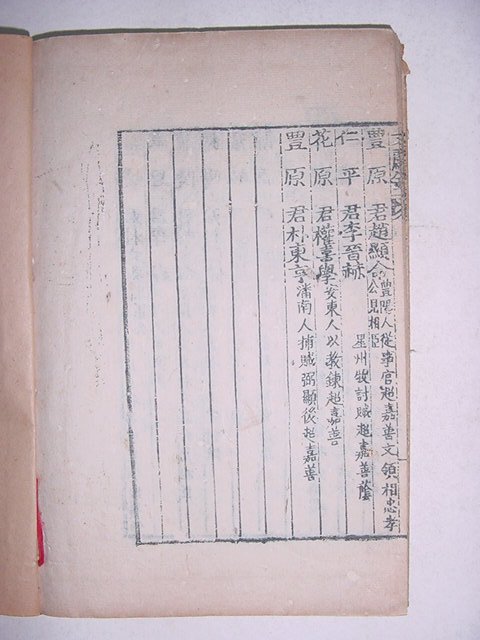 豐原君趙顯命豐陽人從事官超嘉善文領相忠孝
公見相臣
仁平君李晉赫星州牧討賊超嘉善蔭
花原君權喜學安東人以教鍊超嘉善
豐原君朴東亨潘南人捕賊弼顯後超嘉善